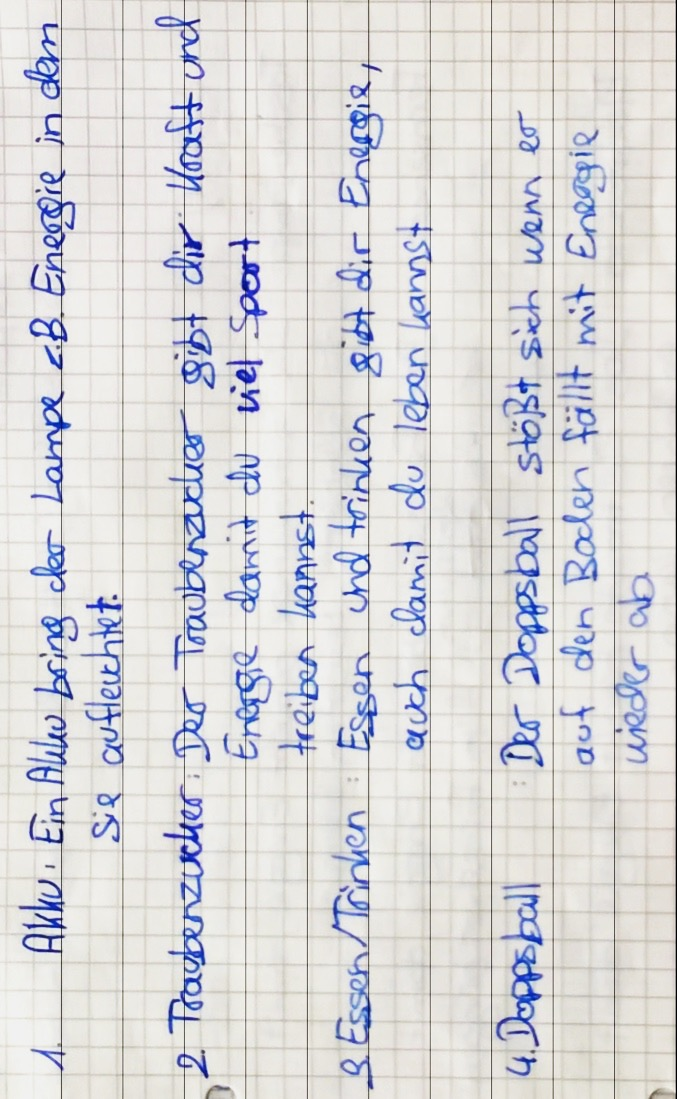 1. Akku: Ein Akku bring der Lampe z.B. Energie in dem
sie aufleuchtet.
2. Traubenzucker: Der Traubenzucker gibt dir Kraft und
Energie damit du viel Sport
treiben kannst.
3. Essen/Trinken: Essen und trinken gibt dir Energie,
auch damit du leben kannst
4. Doppsball: Der Doppsball stößt sich wenn er
auf den Boden fällt mit Energie
wieder ab